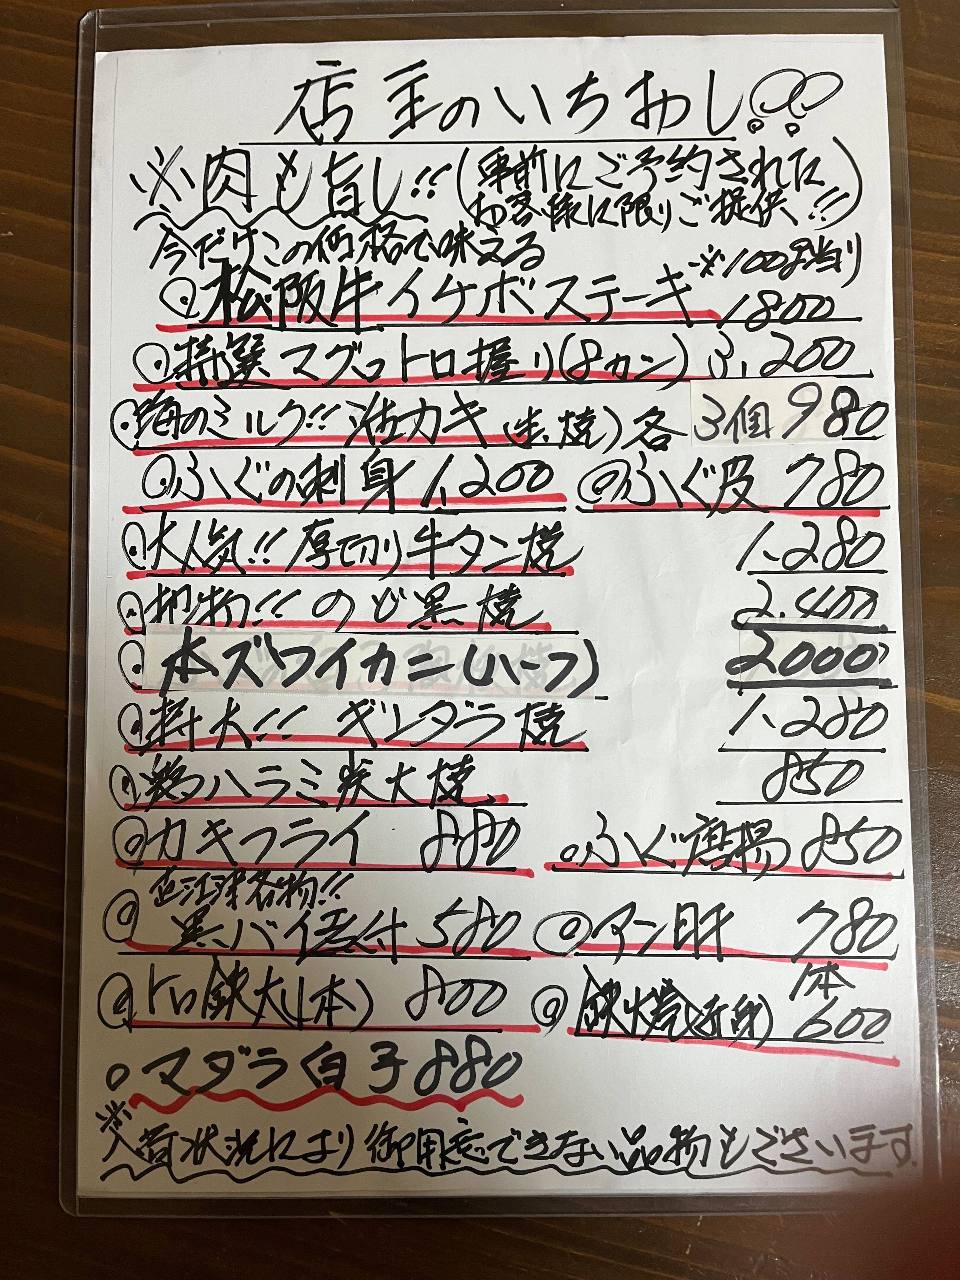 店主のいちおし!!
※肉も旨し!!(事前にご予約された
お客様に限りご提供!!)
今だけこの価格で味える
◎松阪牛イチボステーキ ※100g当り 1800
◎特選マグロトロ握り(8カン) 3,200
◎海のミルク!!活カキ(生、焼)各 3個 980
◎ふぐの刺身 1,200 ◎ふぐ皮 780
◎大人気!!厚切り牛タン焼 1,280
◎初物!!のど黒焼 2,400
◎本ズワイカニ(ハーフ) 2000
◎特大!!ギンダラ焼 1,280
◎鶏ハラミ炭火焼 850
◎カキフライ 880 ◎ふぐ唐揚 850
直江津名物!!
◎黒バイ煮付 580 ◎アン肝 780
◎トロ鉄火(1本) 800 ◎鉄火(赤身) 1本 600
○マダラ白子 880
※入荷状況により御用意できない品物もございます。